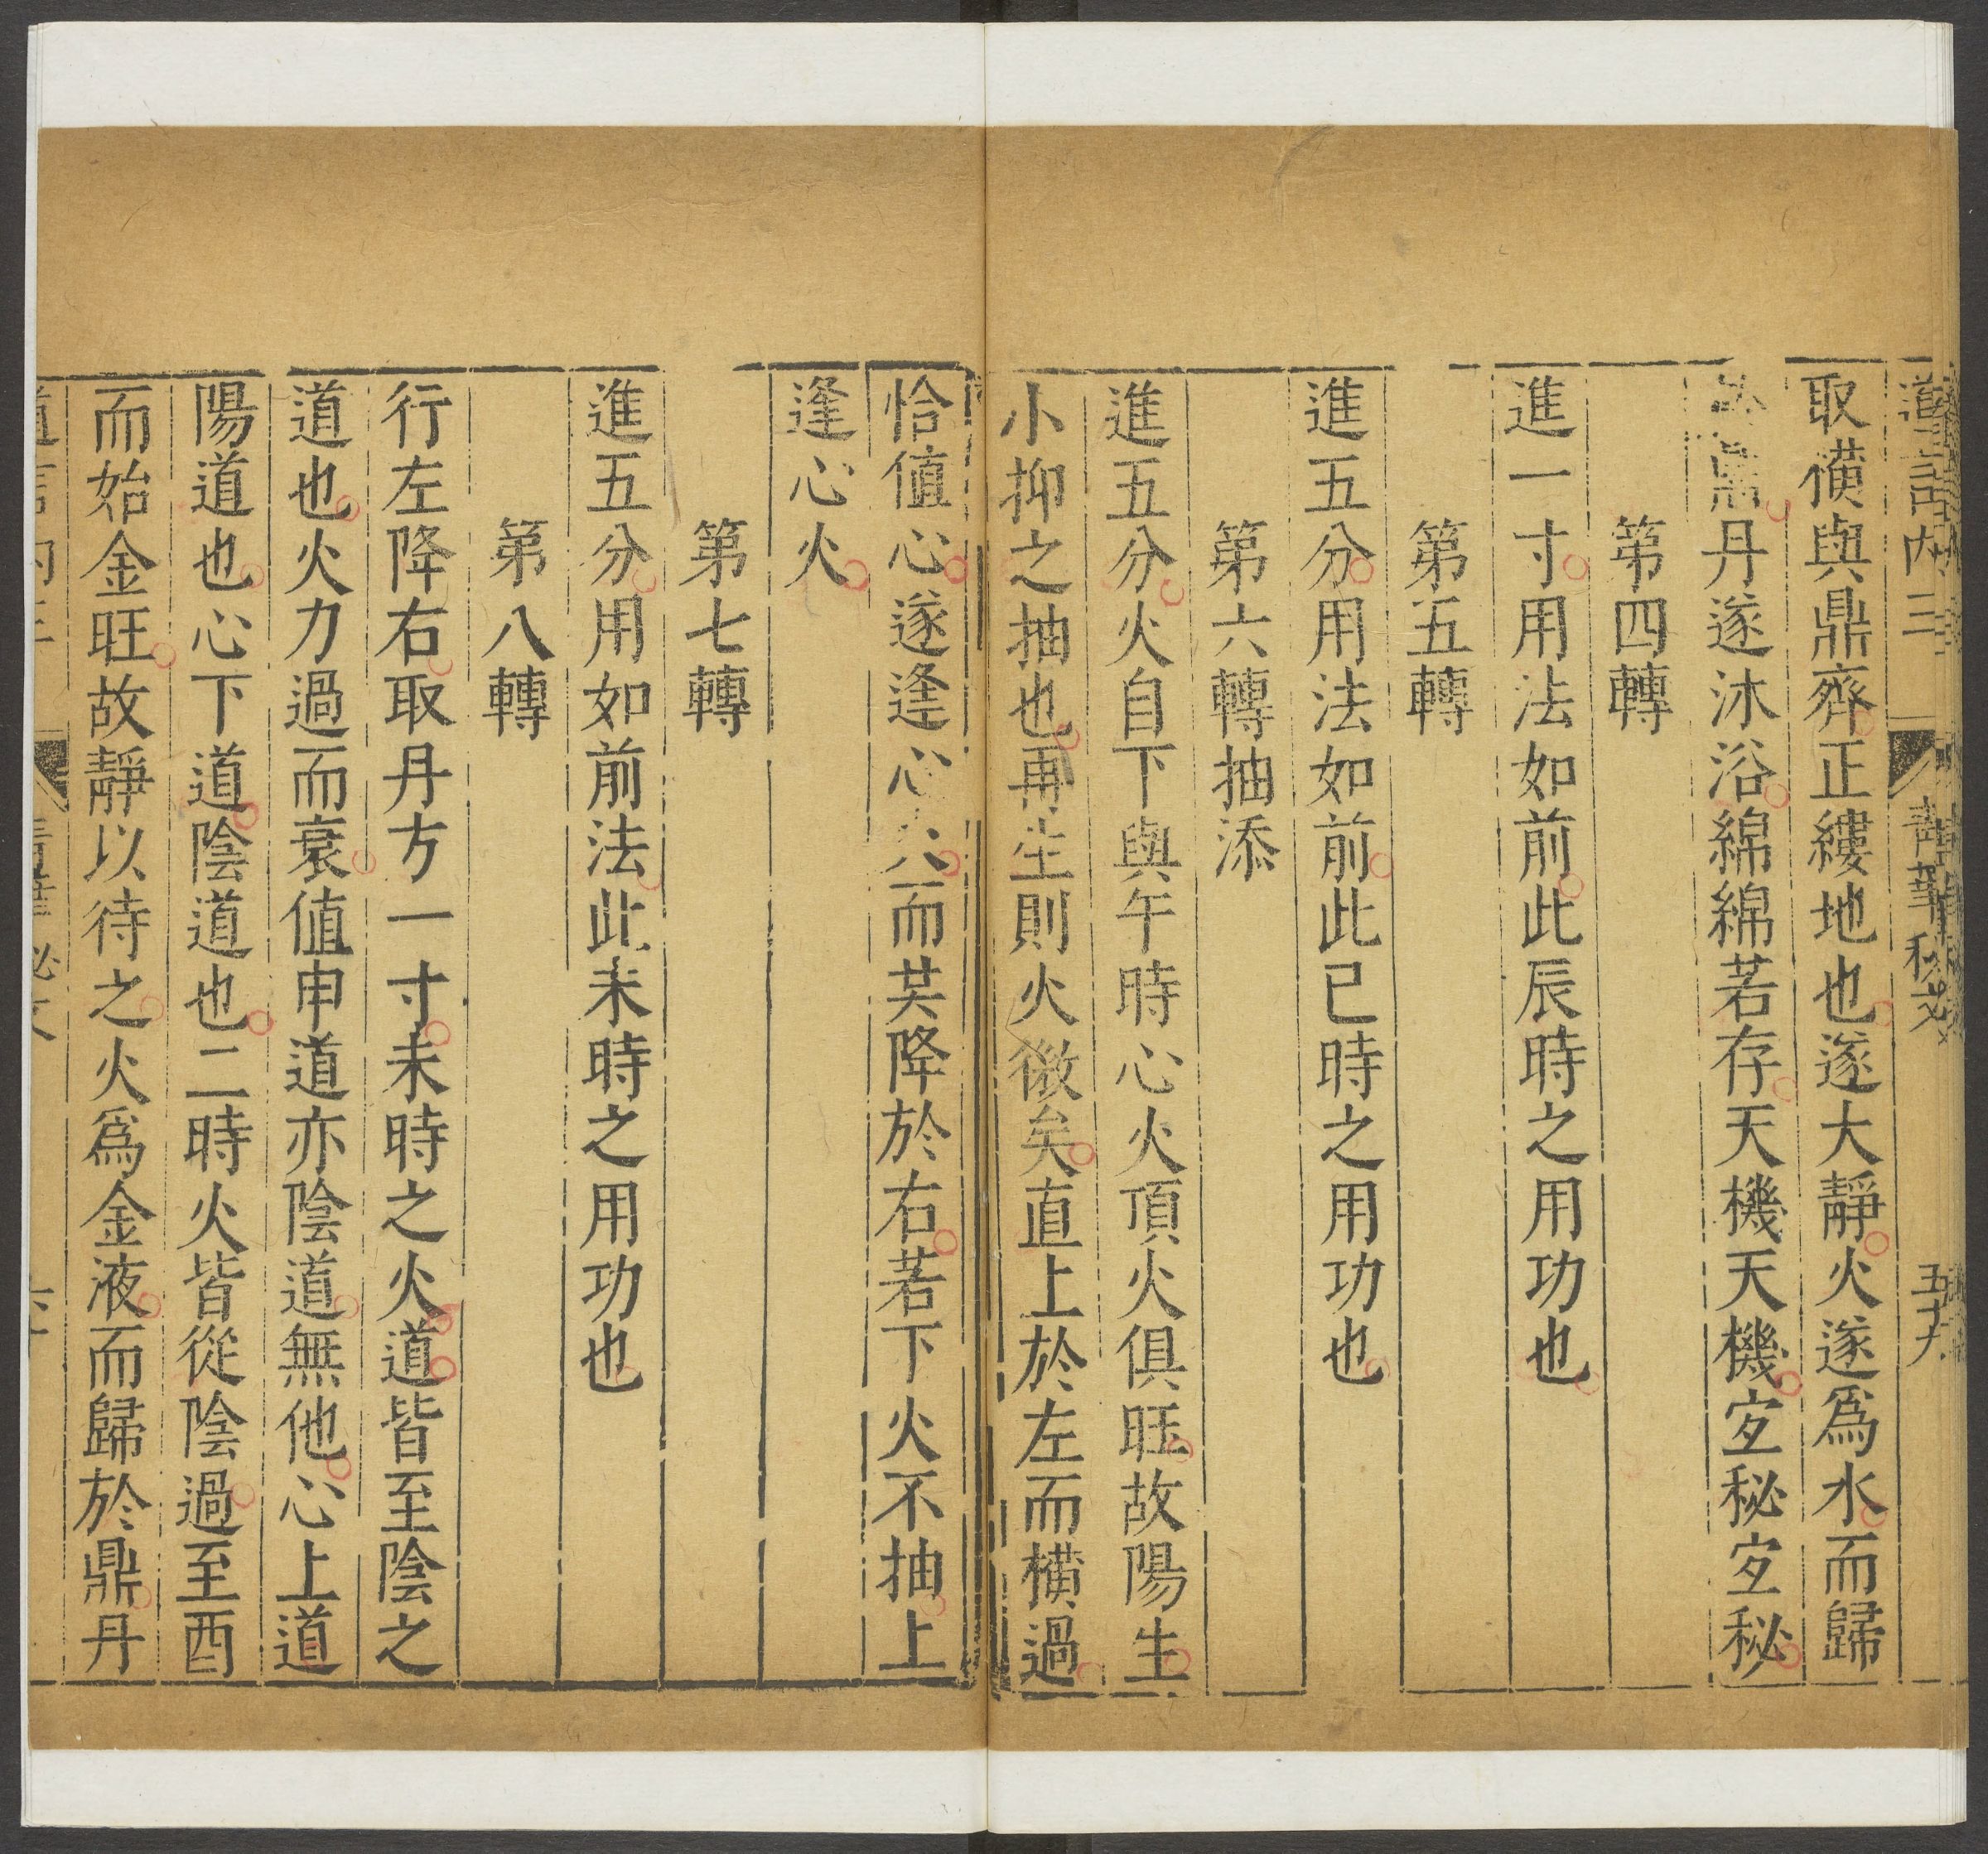 道言內三 青華秘文 五十九
取橫與鼎齊正縷地也遂大靜火遂爲水而歸
鼎丹遂沐浴綿綿若存天機天機宻秘宻秘
第四轉
進一寸用法如前此辰時之用功也
第五轉
進五分用法如前此巳時之用功也
第六轉抽添
進五分火自下與午時心火頂火俱旺故陽生
小抑之抽也再生則火微矣直上於左而橫過
恰值心遂逢心火而其降於右若下火不抽上
逢心火
第七轉
進五分用如前法此未時之用功也
第八轉
行左降右取丹方一寸未時之火道皆至陰之
道也火力過而衰值申道亦陰道無他心上道
陽道也心下道陰道也二時火皆從陰過至酉
而始金旺故靜以待之火爲金液而歸於鼎丹
道言內三 青華秘文 六十